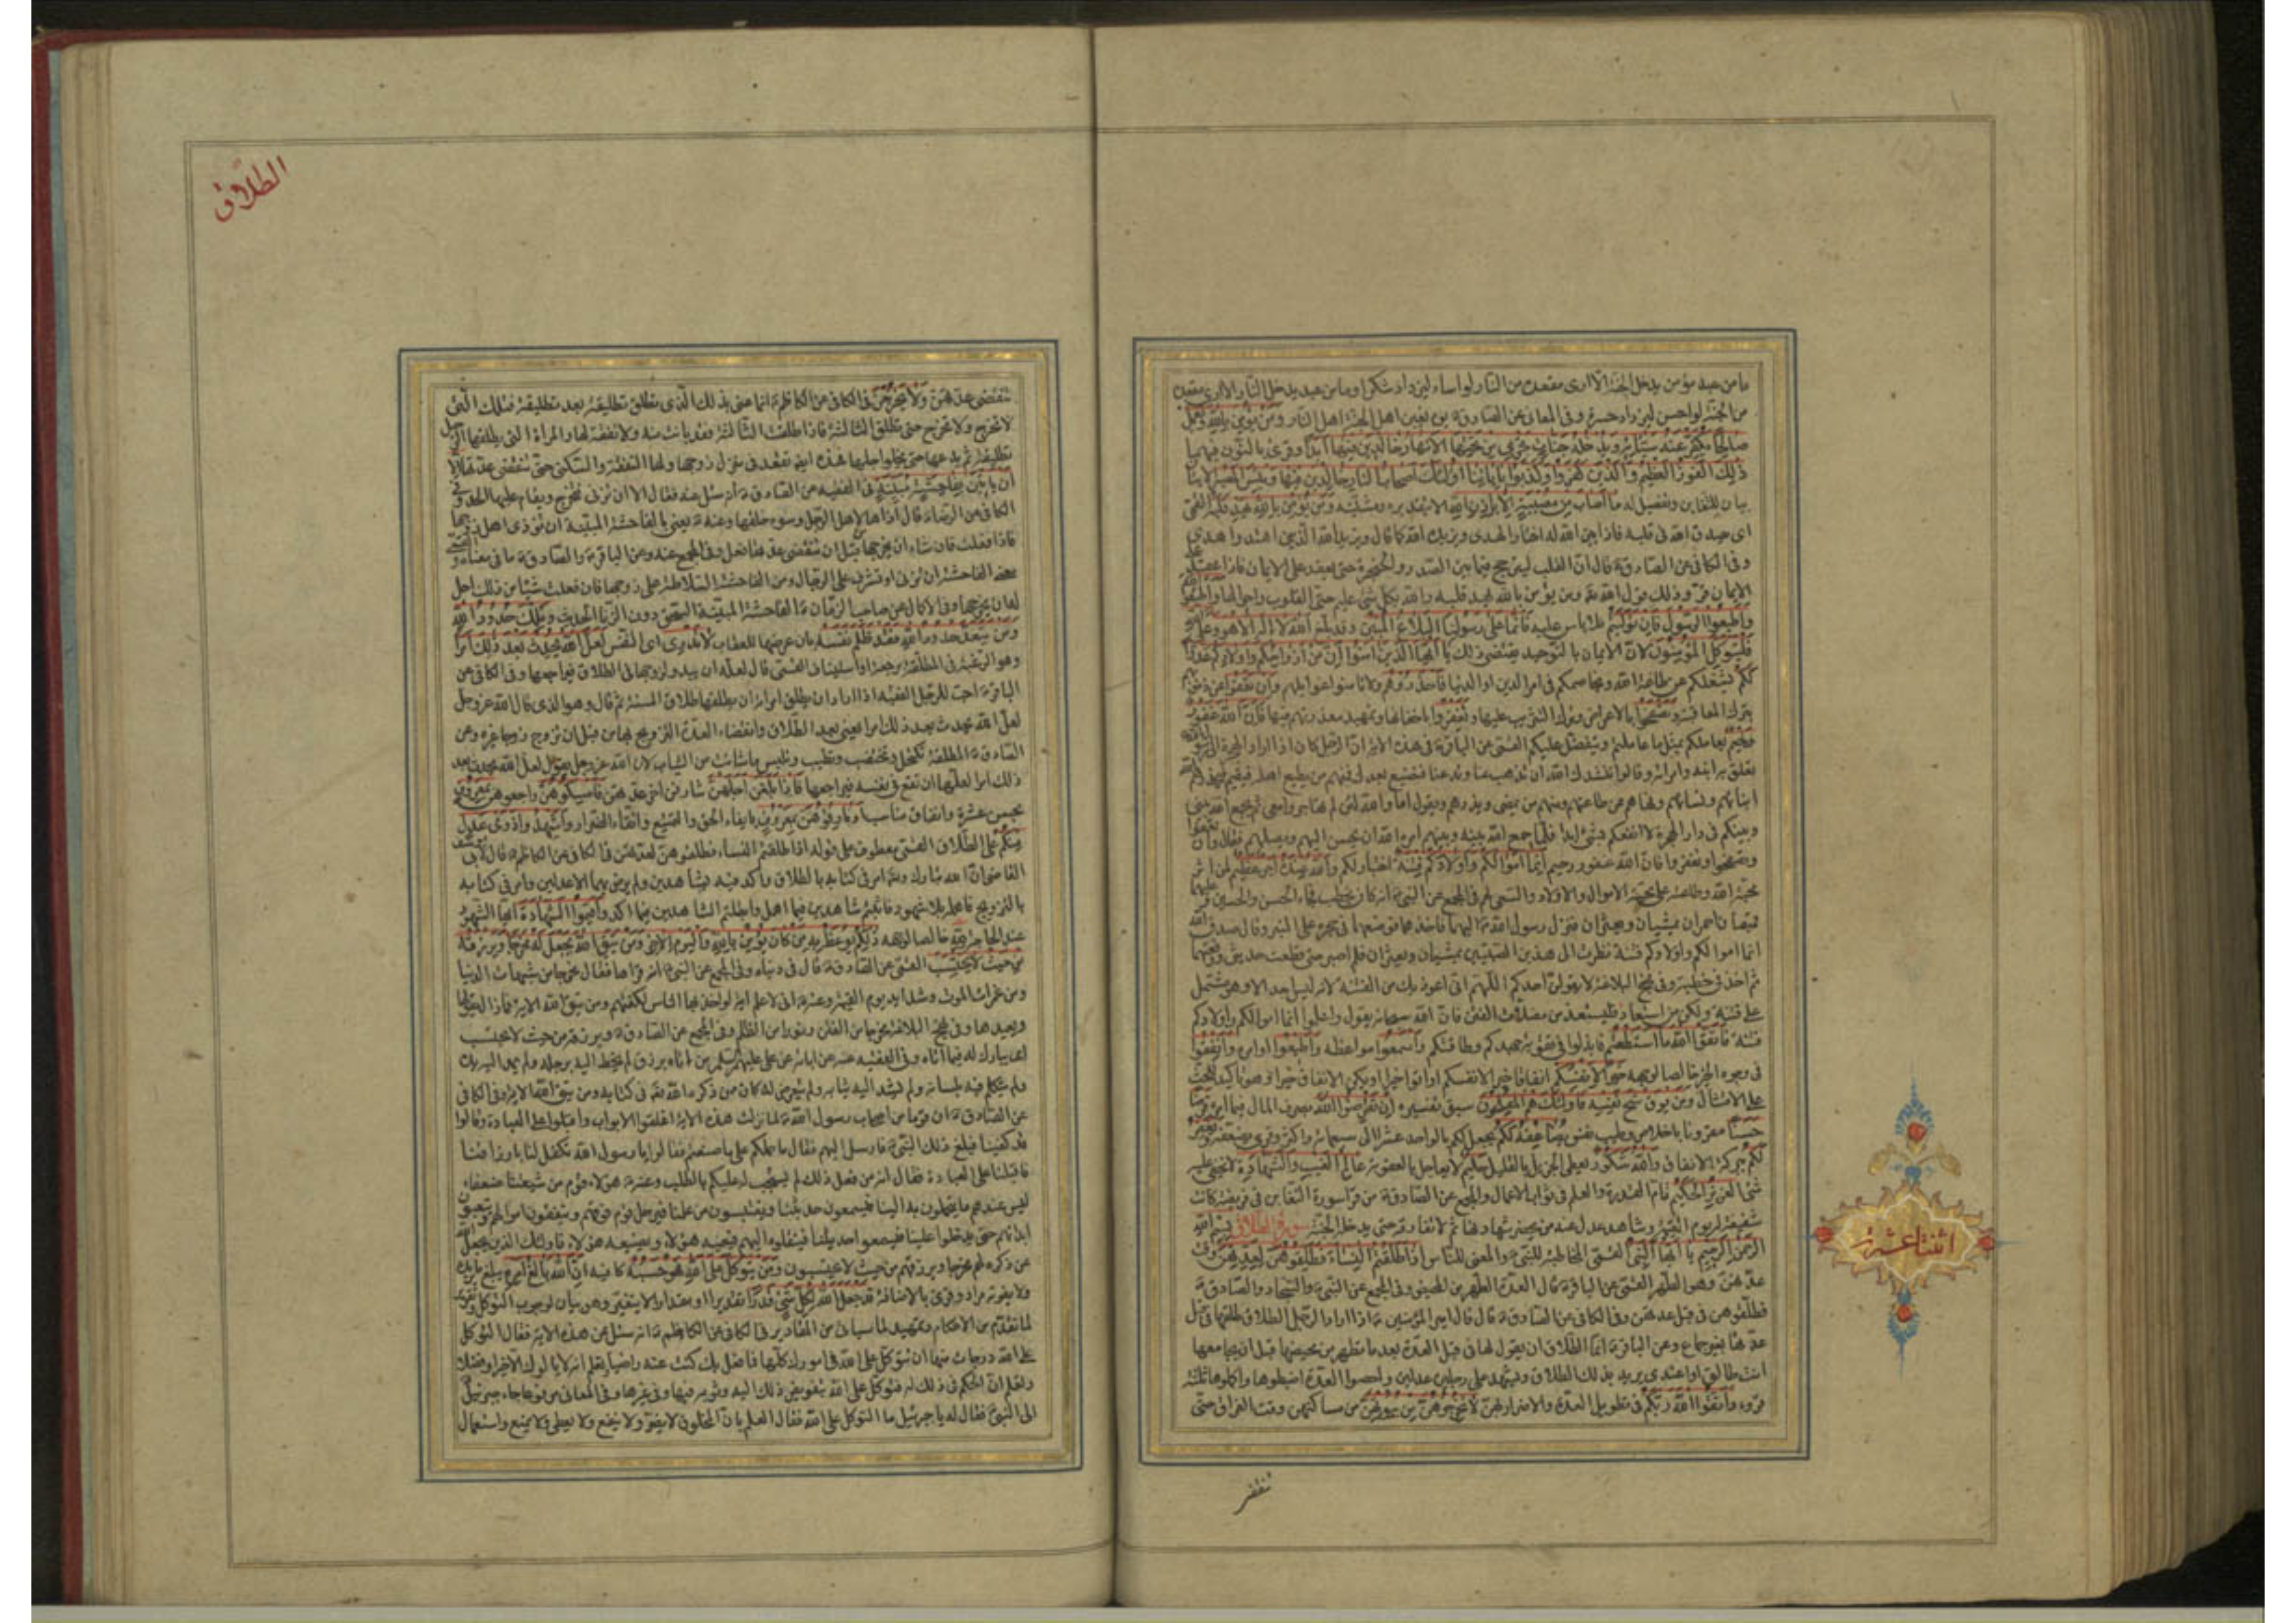 ما من عبد مؤمن يدخل الجنة الا ارى مقعده من النار لو اساء ليزداد شكرا وما من عبد يدخل النار الا ارى مقعده
من الجنة لو احسن ليزداد حسرة وفى المعانى عن الصادق يوم يغبن اهل الجنة اهل النار ومن يؤمن بالله ويعمل
صالحا يكفر عنه سيئاته ويدخله جنات تجرى من تحتها الانهار خالدين فيها ابدا وقرئ بالنون فيهما
ذلك الفوز العظيم والذين كفروا وكذبوا باياتنا اولئك اصحاب النار خالدين فيها وبئس المصير
بيان للتغابن وتفصيل له ما اصاب من مصيبة الا باذن الله الا بتقديره ومشيته ومن يؤمن بالله يهد قلبه القمى
اى يصدق الله فى قلبه فاذا بين الله له اختار الهدى ويزيده الله كما قال ويزيد الله الذين اهتدوا هدى
وفى الكافى عن الصادق قال ان القلب ليترجج فيما بين الصدر والحنجرة حتى يعقد على الايمان فاذا عقد على
الايمان قر وذلك قول الله ومن يؤمن بالله يهد قلبه والله بكل شئ عليم حتى القلوب واحوالها واطيعوا الله
واطيعوا الرسول فان توليتم فلا باس عليه فانما على رسولنا البلاغ المبين وقد بلغ الله لا اله الا هو وعلى الله
فليتوكل المؤمنون لان الايمان بالتوحيد يقتضى ذلك يا ايها الذين امنوا ان من ازواجكم واولادكم عدوا
لكم يشغلكم عن طاعة الله ويخاصمكم فى امر الدين او الدنيا فاحذروهم ولا تامنوا غوايلهم وان تعفوا عن ذنوبهم
بترك المعاقبة وتصفحوا بالاعراض وترك التثريب عليها وتغفروا باخفائها وتمهيد معذرتهم فيها فان الله غفور
رحيم يعاملكم بمثل ما عاملتم ويتفضل عليكم القمى عن الباقر فى هذه الاية ان الرجل كان اذا اراد الهجرة الى رسول الله
تعلق به ابنه وامراته وقالوا ننشدك الله ان تذهب عنا وتدعنا فنضيع بعدك فمنهم من يطيع اهله فيقيم فحذرهم الله
ابنائهم ونسائهم ونهاهم عن طاعتهم ومنهم من يمضى ويذرهم ويقول اما والله لئن لم تهاجروا معى ثم يجمع الله بينى
وبينكم فى دار الهجرة لا انفعكم بشئ ابدا فلما جمع الله بينه وبينهم امره الله ان يحسن اليهم ويصلهم فقال وان تعفوا
وتصفحوا وتغفروا فان الله غفور رحيم انما اموالكم واولادكم فتنة اختبار لكم والله عنده اجر عظيم لمن اثر
محبة الله وطاعته على محبة الاموال والاولاد والسعى لهم فى المجمع عن النبى انه كان يخطب فجاء الحسن والحسين عليهما
قميصان احمران يمشيان ويعثران فنزل رسول الله اليهما فاخذهما فوضعهما فى حجره على المنبر وقال صدق الله
انما اموالكم واولادكم فتنة نظرت الى هذين الصبيين يمشيان ويعثران فلم اصبر حتى قطعت حديثى ورفعتهما
ثم اخذ فى خطبته وفى نهج البلاغة لا يقولن احدكم اللهم انى اعوذ بك من الفتنة لانه ليس احد الا وهو مشتمل
على فتنة ولكن من استعاذ فليستعذ من مضلات الفتن فان الله سبحانه يقول واعلموا انما اموالكم واولادكم
فتنة فاتقوا الله ما استطعتم فابذلوا فى تقواه جهدكم وطاقتكم واسمعوا مواعظه واطيعوا اوامره وانفقوا
فى وجوه الخير خالصا لوجهه خيرا لانفسكم انفاقا خيرا لانفسكم او اتوا خيرا او يكن الانفاق خيرا وهو تاكيد للحث
على الامتثال ومن يوق شح نفسه فاولئك هم المفلحون سبق تفسيره ان تقرضوا الله بصرف المال فيما امره قرضا
حسنا مقرونا باخلاص وطيب نفس يضاعفه لكم يجعل لكم بالواحد عشرا الى سبعمائة واكثر وقرئ يضعفه ويغفر
لكم ببركة الانفاق والله شكور يعطى الجزيل بالقليل حليم لا يعاجل بالعقوبة عالم الغيب والشهادة لا يخفى عليه
شئ العزيز الحكيم تام القدرة والعلم فى ثواب الاعمال والمجمع عن الصادق من قرا سورة التغابن فى فريضة كانت
شفيعة له يوم القيمة وشاهد عدل عند من يجيز شهادتها ثم لا تفارقه حتى يدخل الجنة سورة الطلاق بسم الله
الرحمن الرحيم يا ايها النبى القمى المخاطبة للنبى والمعنى للناس اذا طلقتم النساء فطلقوهن لعدتهن وقت
عدتهن وهو الطهر القمى عن الباقر قال العدة الطهر من الحيض وفى المجمع عن النبى والسجاد والصادق
فطلقوهن فى قبل عدتهن وفى الكافى عن الصادق قال قال امير المؤمنين اذا اراد الرجل الطلاق طلقها فى قبل
عدتها بغير جماع وعن الباقر انما الطلاق ان يقول لها فى قبل العدة بعد ما تطهر من محيضها قبل ان يجامعها
انت طالق او اعتدى يريد بذلك الطلاق ويشهد على ذلك رجلين عدلين واحصوا العدة اضبطوها واكملوها ثلثة
قروء واتقوا الله ربكم فى تطويل العدة والاضرار بهن لا تخرجوهن من بيوتهن من مساكنهن وقت الفراق حتى
تنقضى
اثنتا عشرة
الطلاق
تنقضى عدتهن ولا يخرجن فى الكافى عن الكاظم انما عنى بذلك الذى يطلق تطليقة بعد تطليقة فتلك التى
لا تخرج ولا تخرج حتى تطلق الثالثة فاذا طلقت الثالثة فقد بانت منه ولا نفقة لها والمراة التى يطلقها الرجل
تطليقة ثم يدعها حتى يخلو اجلها فهذه ايضا تقعد فى منزل زوجها ولها النفقة والسكنى حتى تنقضى عدتها الا
ان ياتين بفاحشة مبينة فى الفقيه عن الصادق انه سئل عنه فقال الا ان تزنى فتخرج ويقام عليها الحد وفى
الكافى عن الرضا قال اذاها لاهل الرجل وسوء خلقها وعنه يعنى بالفاحشة المبينة ان تؤذى اهل زوجها
فاذا فعلت فان شاء ان يخرجها قبل ان تنقضى عدتها فعل وفى المجمع عنه وعن الباقر والصادق ما فى معناه والقمى
معنى الفاحشة ان تزنى او تشرف على الرجال ومن الفاحشة السلاطة على زوجها فان فعلت شيئا من ذلك حل
له ان يخرجها وفى الاكمال عن صاحب الزمان الفاحشة المبينة السحق دون الزنا الحديث وتلك حدود الله
ومن يتعد حدود الله فقد ظلم نفسه بان عرضها للعقاب لا تدرى اى النفس لعل الله يحدث بعد ذلك امرا
وهو الرغبة فى المطلقة برجعة او استيناف القمى قال لعله ان يبدو لزوجها فى الطلاق فيراجعها وفى الكافى عن
الباقر احب للرجل الفقيه اذا اراد ان يطلق امراته ان يطلقها طلاق السنة ثم قال وهو الذى قال الله عز وجل
لعل الله يحدث بعد ذلك امرا يعنى بعد الطلاق وانقضاء العدة التزويج بها من قبل ان تزوج زوجا غيره وعن
الصادق المطلقة تكتحل وتختضب وتطيب وتلبس ما شائت من الثياب لان الله عز وجل يقول لعل الله يحدث بعد
ذلك امرا لعلها ان تقع فى نفسه فيراجعها فاذا بلغن اجلهن شارفن اخر عدتهن فامسكوهن راجعوهن بمعروف
بحسن عشرة وانفاق مناسب او فارقوهن بمعروف بايفاء الحق والتمتيع واتقاء الضرار واشهدوا ذوى عدل
منكم على الطلاق القمى معطوف على قوله اذا طلقتم النساء فطلقوهن لعدتهن فى الكافى عن الكاظم قال لابى يوسف
القاضى ان الله تبارك وتعالى امر فى كتابه بالطلاق واكد فيه بشاهدين ولم يرض بهما الا عدلين وامر فى كتابه
بالتزويج فاهمله بلا شهود فاثبتم شاهدين فيما اهمل وابطلتم الشاهدين فيما اكد واقيموا الشهادة ايها الشهود
عند الحاجة لله خالصا لوجهه ذلكم يوعظ به من كان يؤمن بالله واليوم الاخر ومن يتق الله يجعل له مخرجا ويرزقه
من حيث لا يحتسب القمى عن الصادق قال فى دنياه وفى المجمع عن النبى انه قراها فقال مخرجا من شبهات الدنيا
ومن غمرات الموت وشدايد يوم القيمة وعنه انى لاعلم اية لو اخذ بها الناس لكفتهم ومن يتق الله الاية فما زال يقولها
ويعيدها وفى نهج البلاغة مخرجا من الفتن ونورا من الظلم وفى المجمع عن الصادق ويرزقه من حيث لا يحتسب
اى يبارك له فيما اتاه وفى الفقيه عنه عن ابائه عن على عليهم السلام من اتاه الله برزق لم يخط اليه برجله ولم يمد اليه يده
ولم يتكلم فيه بلسانه ولم يشد اليه ثيابه ولم يتعرض له كان ممن ذكره الله فى كتابه ومن يتق الله الاية وفى الكافى
عن الصادق ان قوما من اصحاب رسول الله لما نزلت هذه الاية اغلقوا الابواب واقبلوا على العبادة وقالوا
قد كفينا فبلغ ذلك النبى فارسل اليهم فقال ما حملكم على ما صنعتم فقالوا يا رسول الله تكفل لنا بارزاقنا
فاقبلنا على العبادة فقال انه من فعل ذلك لم يستجب له عليكم بالطلب وعنه هؤلاء قوم من شيعتنا ضعفاء
ليس عندهم ما يتحملون به الينا فيسمعون حديثنا ويقتبسون من علمنا فيرحل قوم فوقهم وينفقون اموالهم ويتعبون
ابدانهم حتى يدخلوا علينا فيسمعوا حديثنا فينقلوه اليهم فيعيه هؤلاء ويضيعه هؤلاء فاولئك الذين يجعل الله
عز ذكره لهم مخرجا ويرزقهم من حيث لا يحتسبون ومن يتوكل على الله فهو حسبه كافيه ان الله بالغ امره يبلغ ما يريد
ولا يفوته مراد وقرئ بالاضافة قد جعل الله لكل شئ قدرا تقديرا او مقدارا لا يتغير وهو بيان لوجوب التوكل وتقرير
لما تقدم من الاحكام وتمهيد لما سياتى من المقادير فى الكافى عن الكاظم انه سئل عن هذه الاية فقال التوكل
على الله درجات منها ان تتوكل على الله فى امورك كلها فما فعل بك كنت عنه راضيا تعلم انه لا يالوك الا خيرا وفضلا
وتعلم ان الحكم فى ذلك له فتوكل على الله بتفويض ذلك اليه وثق به فيها وفى غيرها وفى المعانى مرفوعا جاء جبرئيل
الى النبى فقال له يا جبرئيل ما التوكل على الله فقال العلم بان المخلوق لا يضر ولا ينفع ولا يعطى ولا يمنع واستعمال